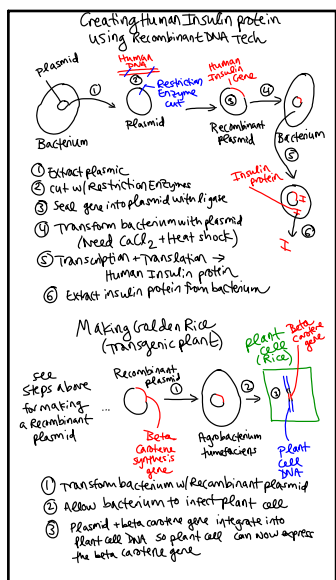 Creating Human Insulin protein
using Recombinant DNA Tech
Human
DNA
Plasmid
①
②
Restriction
Enzyme
cut
Human
Insulin
Gene
③
④
Bacterium
Plasmid
Recombinant
plasmid
Bacterium
⑤
Insulin
protein
I
I
I
⑥
① Extract plasmic
② cut w/Restriction Enzymes
③ Seal gene into plasmid with ligase
④ Transform bacterium with plasmid
(Need CaCl2 + Heat shock)
⑤ Transcription + Translation →
Human Insulin protein
⑥ Extract insulin protein from bacterium
Making Golden Rice
(Transgenic plant)
see
steps above
for making
a Recombinant
plasmid
...
Recombinant
plasmid
①
Beta
Carotene
synthesis
gene
Agrobacterium
tumefaciens
②
Plant
cell
(Rice)
Beta
carotene
gene
③
Plant
cell
DNA
① Transform bacterium w/Recombinant plasmid
② Allow bacterium to infect plant cell
③ Plasmid + beta carotene gene integrate into
plant cell DNA so plant cell can now express
the beta carotene gene